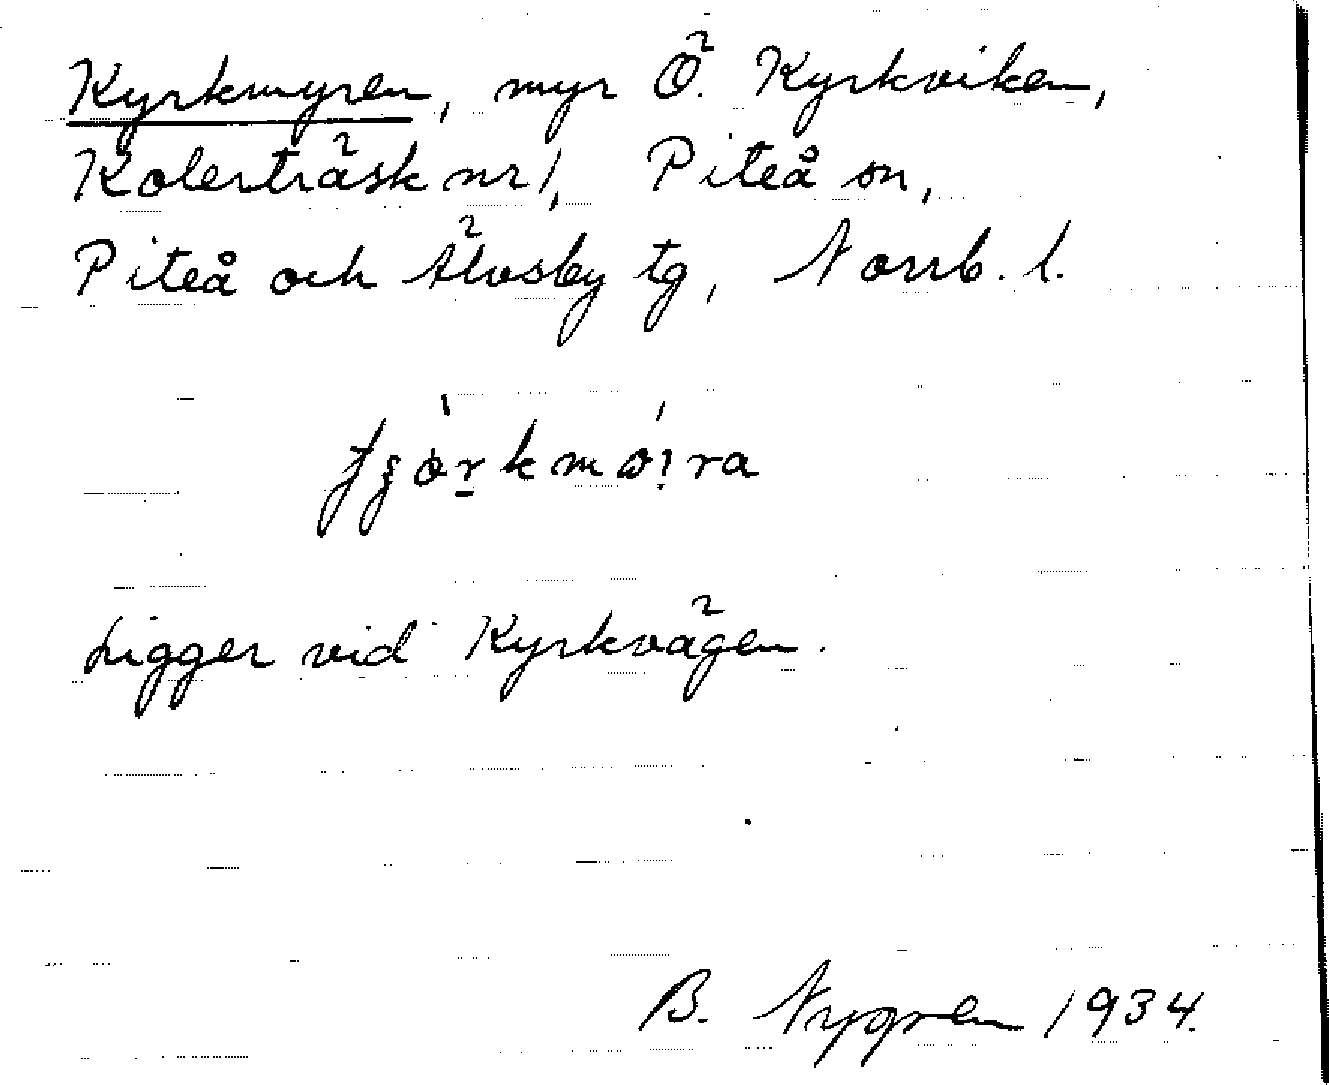 Kyrkmyren, myr Ö. Kyrkviken,
Kolerträsk nr 1, Piteå sn,
Piteå och Älvsby tg, Norrb. l.
Ligger vid Kyrkvägen.
B. Nygren 1934.